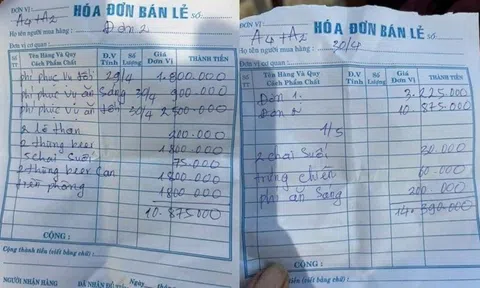 ĐƠN VỊ: A4 + A2
HÓA ĐƠN BÁN LẺ
SỐ
Họ tên người mua hàng: Đơn 2
Đơn vị cơ quan:
SỐ TT
Tên Hàng Và Quy Cách Phẩm Chất
Đ.V Tính
Số Lượng
Giá Đơn Vị
THÀNH TIỀN
phí phục vụ tối 29/4 1.800.000
phí phục vụ ăn sáng 30/4 900.000
phí phục vụ ăn tối 30/4 2.500.000
2 lò than 200.000
2 thùng beer 1800.000
5 chai suối 75.000
2 thùng beer can 1800.000
trên phòng 1800.000
10.875.000
CỘNG:
Cộng thành tiền (viết bằng chữ):
Ngày
NGƯỜI NHẬN HÀNG
ĐÃ NHẬN ĐỦ
ĐƠN VỊ: A4 + A2
HÓA ĐƠN BÁN LẺ
Số
Họ tên người mua hàng: 30/4
Đơn vị cơ quan:
SỐ TT
Tên Hàng Và Quy Cách Phẩm Chất
Đ.V Tính
Số Lượng
Giá Đơn Vị
THÀNH TIỀN
Đơn 1. 3.225.000
Đơn 2 10.875.000
1/5
2 chai suối 30.000
trứng chiên 60.000
phí ăn sáng 200.000
14.390.000
CỘNG:
tiền (viết bằng chữ):